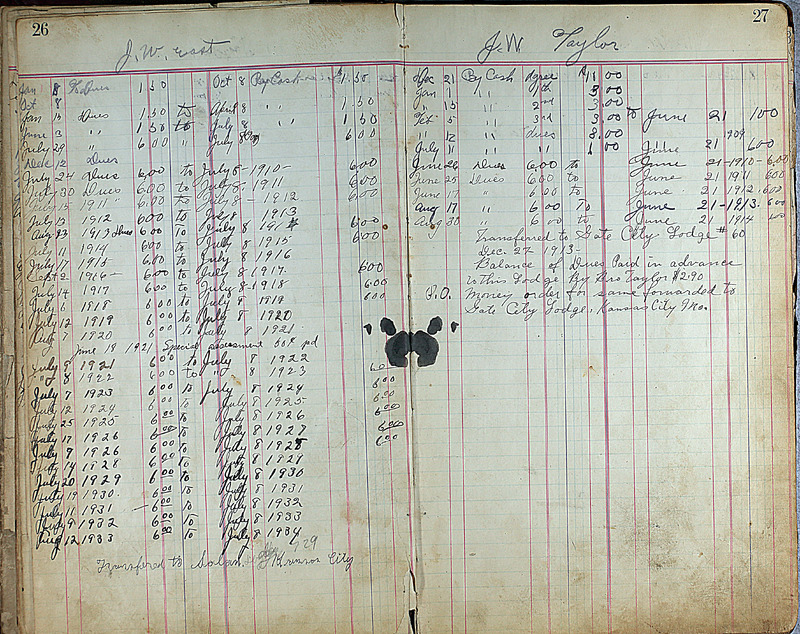 26
J. W. East
Jan 8 To Dues 1 50 Oct 8 By Cash 1.50
Oct 8
Jan 15 Dues 1.50 to April 8 " " 1.50
June 3 " 1.50 to July 8 " " 1.50
July 29 " 6 00 " July 8 6 00
Dec 12 Dues
July 24 Dues 6.00 to July 8-1910- 6 00
Oct 30 Dues 6.00 to July 8-1911 6 00
July 15 1911 " 6.00 to July 8-1912 6 00
July 15 1912 6.00 to July 8 1913
Aug 23 1913 Dues 6.00 to July 8 1914 6 00
July 11 1914 6.00 to July 8 1915 6 00
July 17 1915 6.00 to July 8 1916
Sept 2 1916- 6.00 to July 8 1917 6 00
July 14 1917 6 00 to July 8-1918 6 00
July 6 1918 6 00 to July 8 1919 6 00
July 12 1919 6 00 to July 8 1920
Aug 7 1920 6 00 to July 8 1921
June 18 1921 Special assessment 60¢ pd
July 9 1921 6 00 to July 8 1922
" 8 1922 6 00 to " 8 1923
July 7 1923 6 00 to July 8 1924 6 00
July 12 1924 6 00 to July 8 1925 6 00
July 25 1925 6 00 to July 8 1926 6 00
July 17 1926 6 00 to July 8 1927 6 00
July 9 1926 6 00 to July 8 1928 6 00
July 14 1928 6 00 to July 8 1929
July 20 1929 6 00 to July 8 1930
July 19 1930. 6 00 to July 8 1931
July 11 1931 6 00 to July 8 1932
July 9 1932 6 00 to July 8 1933
Aug 12 1933 6 00 to July 8 1934
Transfered to Kansas City
27
J. W. Taylor
Dec 21 By Cash dgree $11 00
Jan 1 " " 3 00
" 15 " 2nd 3.00
Feb 5 " 3rd 3.00 to June 21 1 00
" 12 " dues 8.00 1909
July 11 " " 1 00 June 21 6 00
June 26 Dues 6 00 to June 21-1910- 6 00
June 25 Dues 6 00 to June 21 1911 6 00
June 17 " 6 00 to June 21 1912 6.00
Aug 17 " 6 00 To June 21-1913. 6 00
Aug 30 " 6 00 to June 21 1914
Transferred to Gate City Lodge # 60
Dec. 27 1913-
Balance of Dues Paid in advance
is this Lodge By Bro Taylor $2.90
P.O. Money order for same forwarded to
Gate City Lodge, Kansas City Mo.